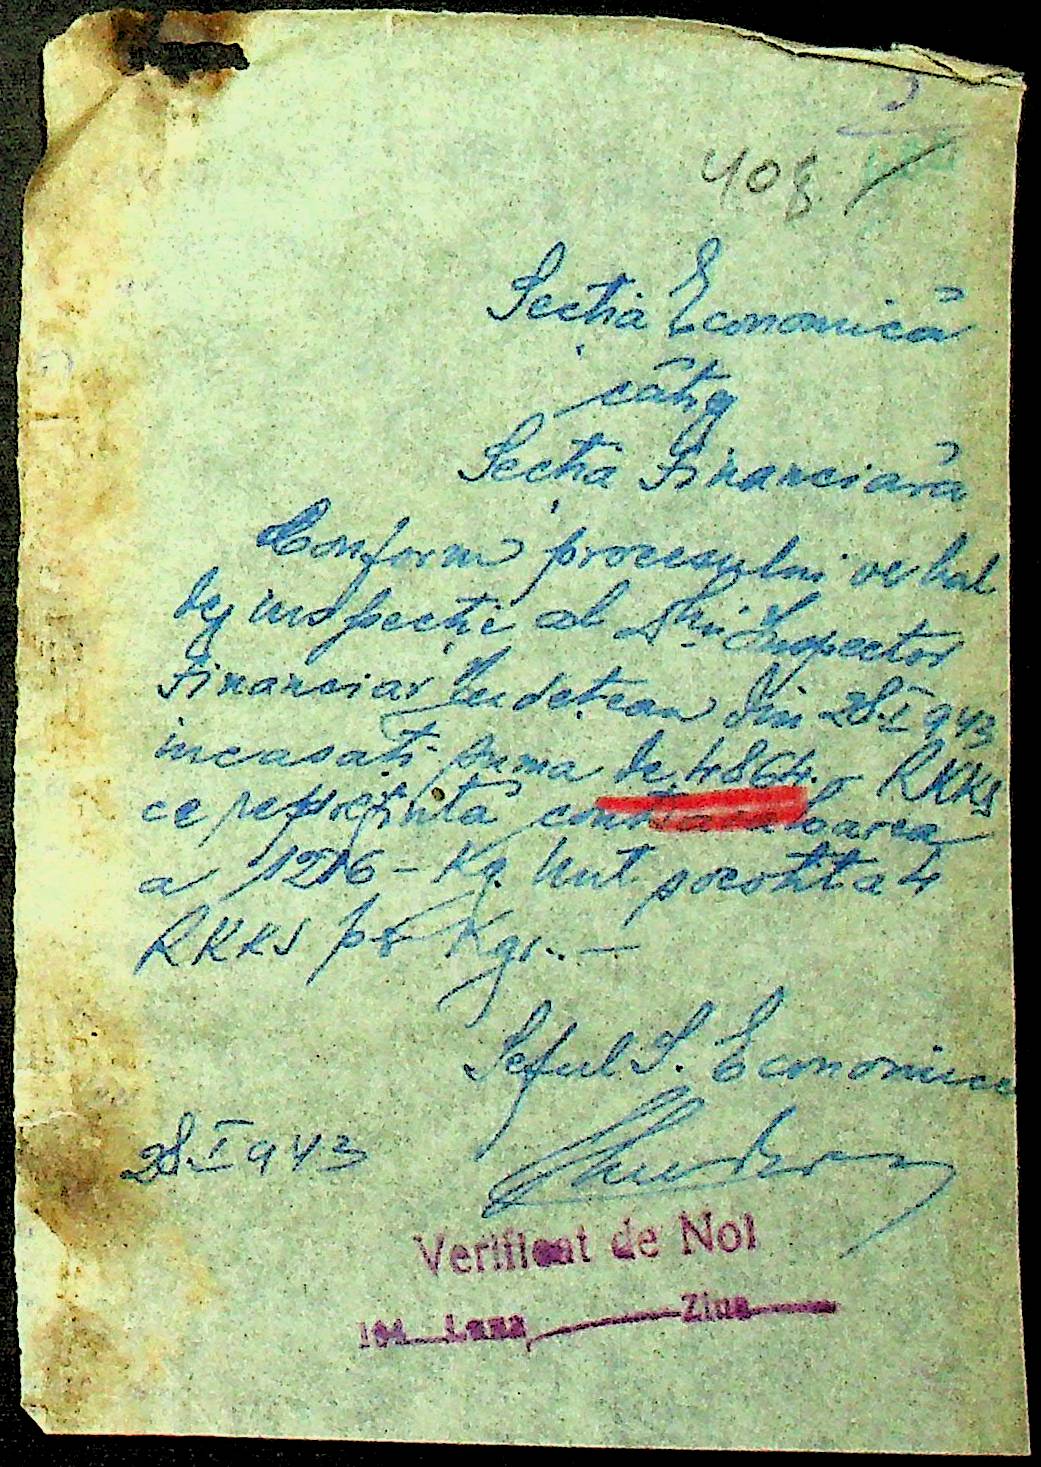 408
Secția Economică
către
Secția Financiară
Conform procesului verbal
de inspecție al Dlui Inspector
Financiar Județean din 28.I 943
incasați suma de 4864.- RKKS
ce reprezintă contravaloarea
a 1216 - Kg. Unt socotit a 4
RKKS pe Kgr. -
Șeful S. Economice
28.I 943
Verificat de Noi
194 Luna Ziua